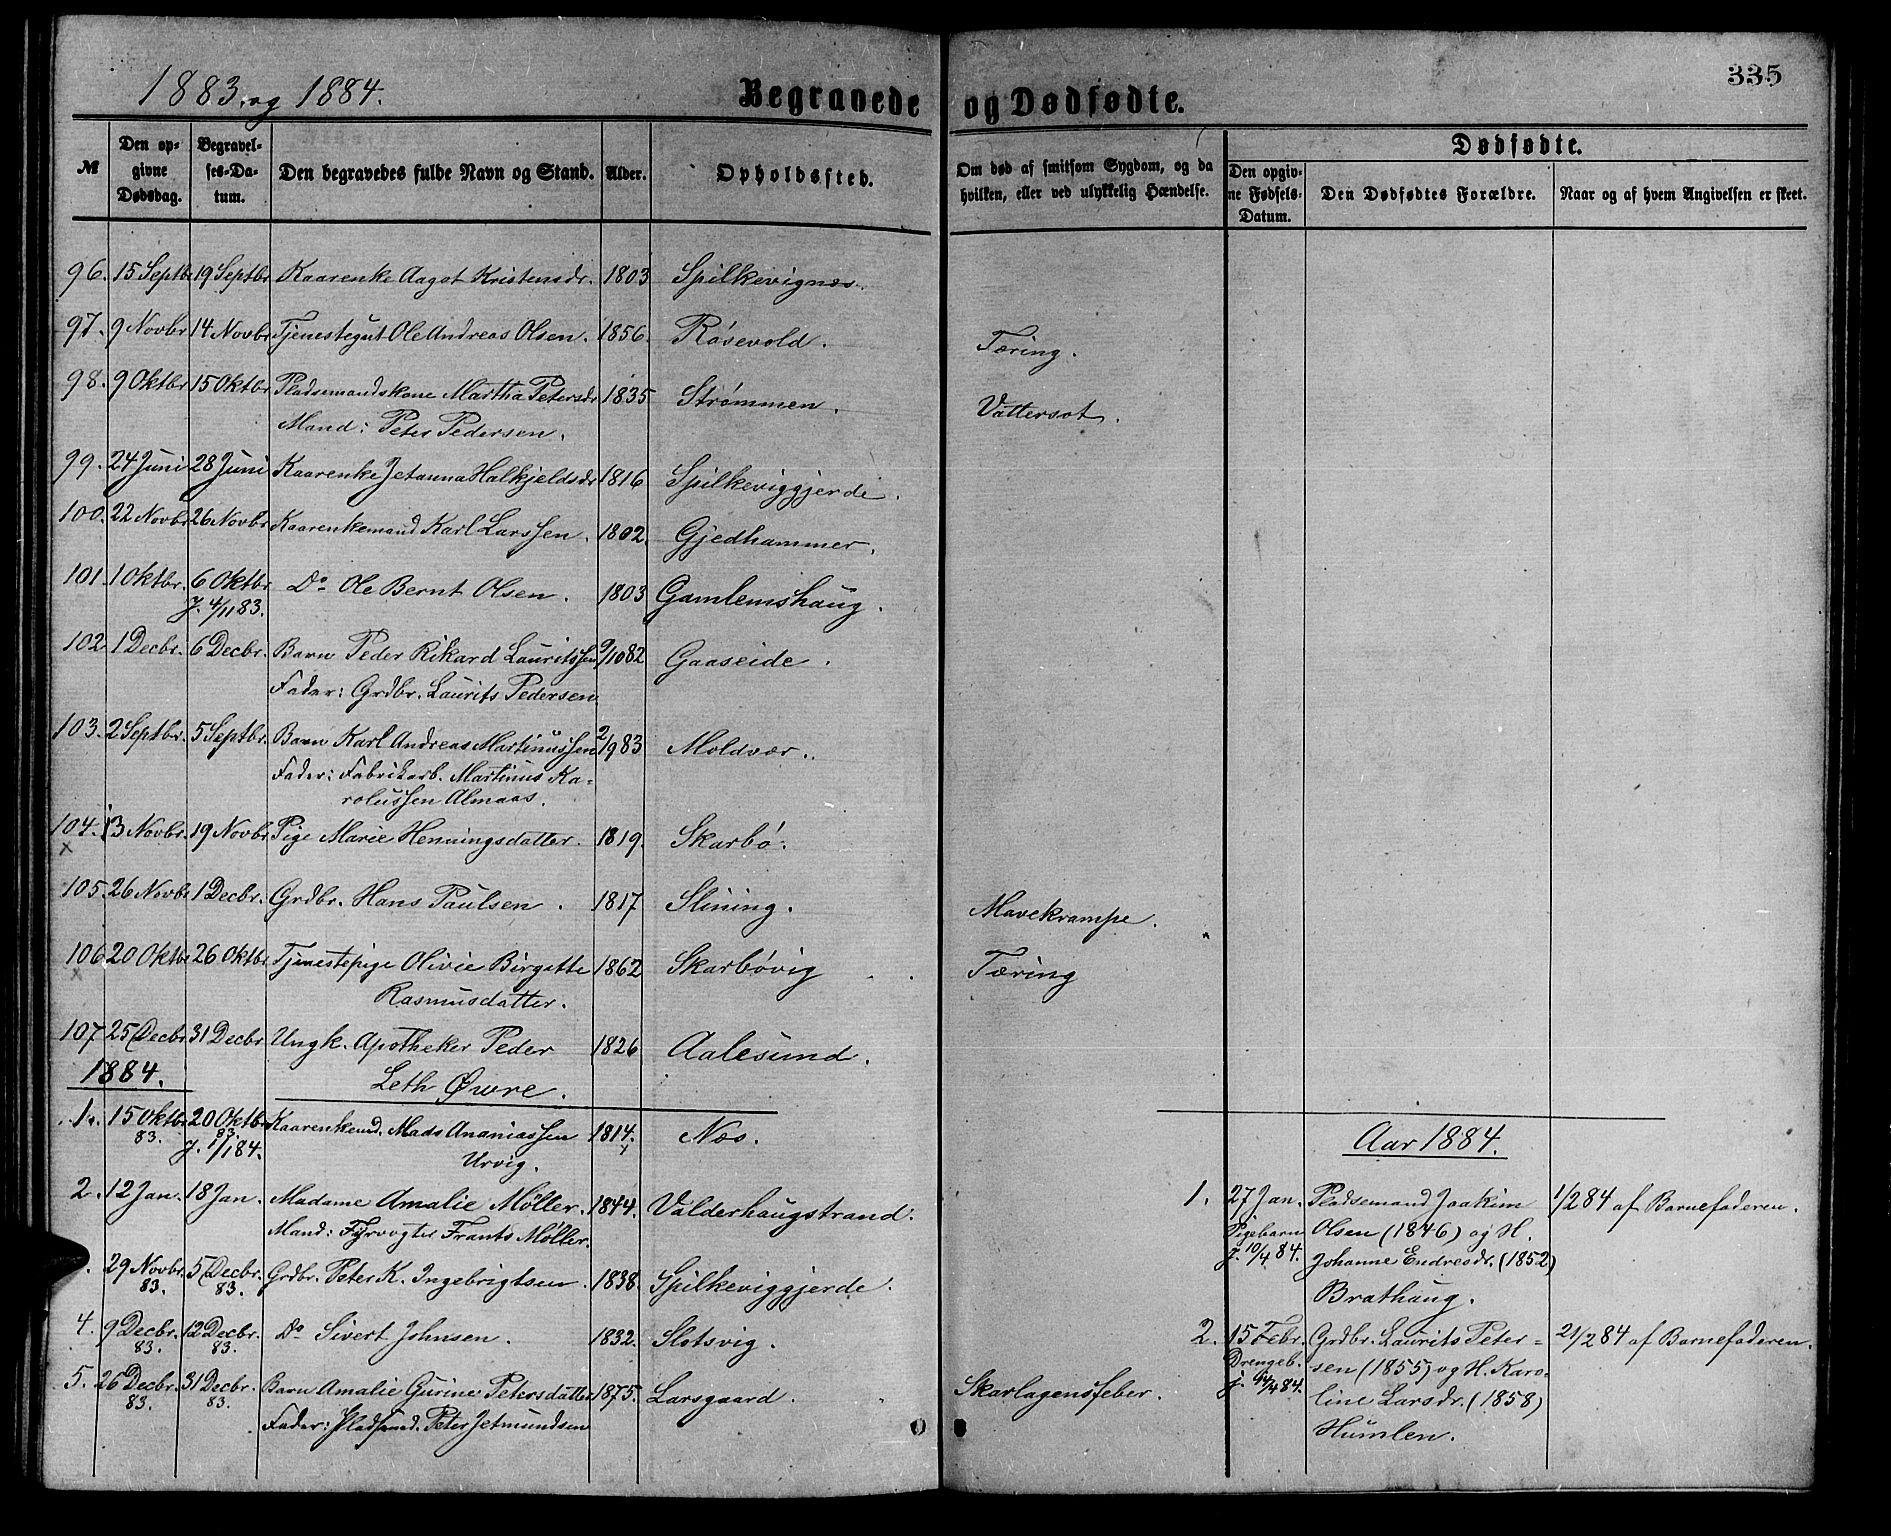 1883. og 1884.
Begravede og Dødfødte.
335
№
Den opgivne Dødsdag.
Begravelses-Datum.
Den begravedes fulde Navn og Stand.
Alder.
Opholdssted.
Om død af smitsom Sygdom, og da hvilken, eller ved ulykkelig Hændelse.
Dødfødte.
Den opgivne Fødsels-Datum.
Den Dødfødtes Forældre.
Naar og af hvem Angivelsen er skeet.
96. 15 Septbr 19 Septbr Kaarenke Aagot Kristensdr. 1803 Spilkevignæs.
97. 9 Novbr 14 Novbr Tjenestegut Ole Andreas Olsen. 1856. Røsevold. Tæring.
98. 9 Oktbr 15 Oktbr Pladsemandskone Martha Petersdr 1835 Strømmen. Vattersot.
Mand: Peter Pedersen.
99. 24 Juni 28 Juni Kaarenke Jetanna Halkjeldsdr 1816 Spilkeviggjerde.
100. 22 Novbr 26 Novbr Kaarenkemand Karl Larssen. 1802. Gjedhammer.
101. 1 Oktbr. 6 Oktbr Do Ole Bernt Olsen. 1803 Gamlemshaug.
J. 4/11 83.
102 1 Decbr. 6 Decbr. Barn Peder Rikard Lauritssen 9/10 82 Gaaseide.
Fader: Grdbr. Laurits Pedersen
103. 2 Septbr. 5 Septbr. Barn Karl Andreas Martinussen 2/9 83 Moldvær.
Fader: Fabrikarb. Martinus Ka-
rolussen Almaas.
104. 13 Novbr. 19 Novbr Pige Marie Henningsdatter. 1819. Skarbø.
x
105. 26 Novbr 1 Decbr. Grdbr. Hans Paulsen. 1817 Slining. Mavekrampe.
106 20 Oktbr 26 Oktbr. Tjenestepige Olivie Birgitte 1862 Skarbøvig Tæring
x Rasmusdatter.
107 25 Decbr 31 Decbr Ungk. Apotheker Peder 1826 Aalesund.
Leth Øwre.
1884.
1. 15 Oktbr 83. 20 Oktbr 83 Kaarenkemd. Mads Ananiassen 1814. Næs.
J. 1/1 84. Urvig.
2. 12 Jan. 18 Jan. Madame Amalie Möller. 1844. Valderhaugstrand.
Mand: Fyrvogter Frants Möller.
29 Novbr. 83. 5 Decbr. 83. Grdbr. Peter K. Ingebrigtsen. 1838. Spilkeviggjerde.
4. 9 Decbr. 83. 12 Decbr. 83. Do Sivert Johnsen. 1832. Slotsvig.
5. 26 Decbr. 83. 31 Decbr. 83. Barn Amalie Gurine Petersdatter 1875. Larsgaard. Skarlagensfeber.
Fader: Pladsemd. Peter Jetmundsen
Aar 1884.
1. 27 Jan. Pladsemand Joakim 1/2 84 af Barnefaderen.
Pigebarn Olsen (1846) og H.
J. 10/4 84. Johanne Endresdr. (1852)
Brathaug.
2. 15 Febr. Grdbr. Laurits Peter- 21/2 84 af Barnefaderen.
Drengeb. sen (1855) og H. Karo-
J. 14/4 84. line Larsdr. (1858)
Humlen.